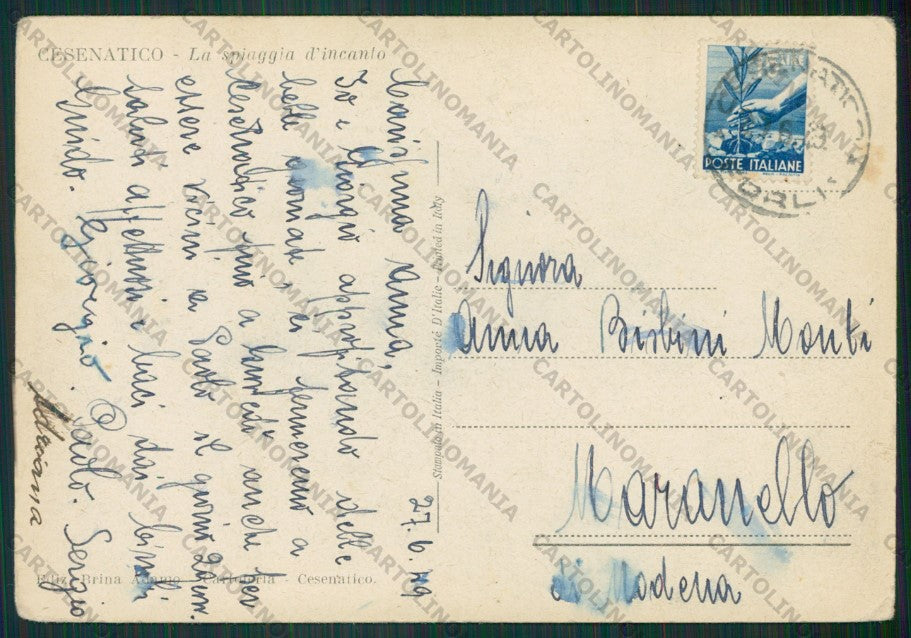 CESENATICO - La spiaggia d'incanto
27.6.49
Carissima Anna,
Io e Giorgio approfittando delle
belle giornate ci fermeremo a
Cesenatico fino a lunedì anche per
essere vicini a Paolo il giorno
saluti affettuosi e baci dai bimbi
Guido. Giorgio. Paolo. Sergio
Adriana
Stampato in Italia - Importé D'Italie - Printed in Italy
POSTE ITALIANE
FORLI
Signora
Anna Bisbini Monti
Maranello
di Modena
Ediz. Brina Adamo - Cartoleria - Cesenatico.
CARTOLINOMANIA